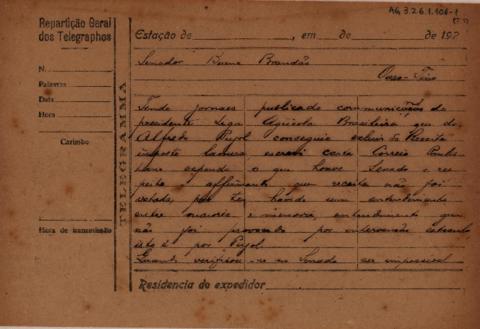 AG, 3.26.1.106-1
Repartição Geral
dos Telegraphos
N.
Palavras
Data
Hora
Carimbo
Hora da transmissão
TELEGRAMMA
Estação de , em de de 192
Senador Bueno Brandão
Ouro-Fino
Tendo jornaes publicado communicação do
presidente Liga Agricola Brasileira que dr
Alfredo Pujol conseguiu excluir da Receita
imposto lavoura escrevi carta Correio Paulis-
tano expondo o que houve Senado a res-
peito affirmando que receita não foi
votada, por ter havido um entendimento
entre maioria e minoria, entendimento que
não foi provocado por intervenção
isto é por Pujol.
Quando verificou-se no Senado ser impossivel
Residencia do expedidor